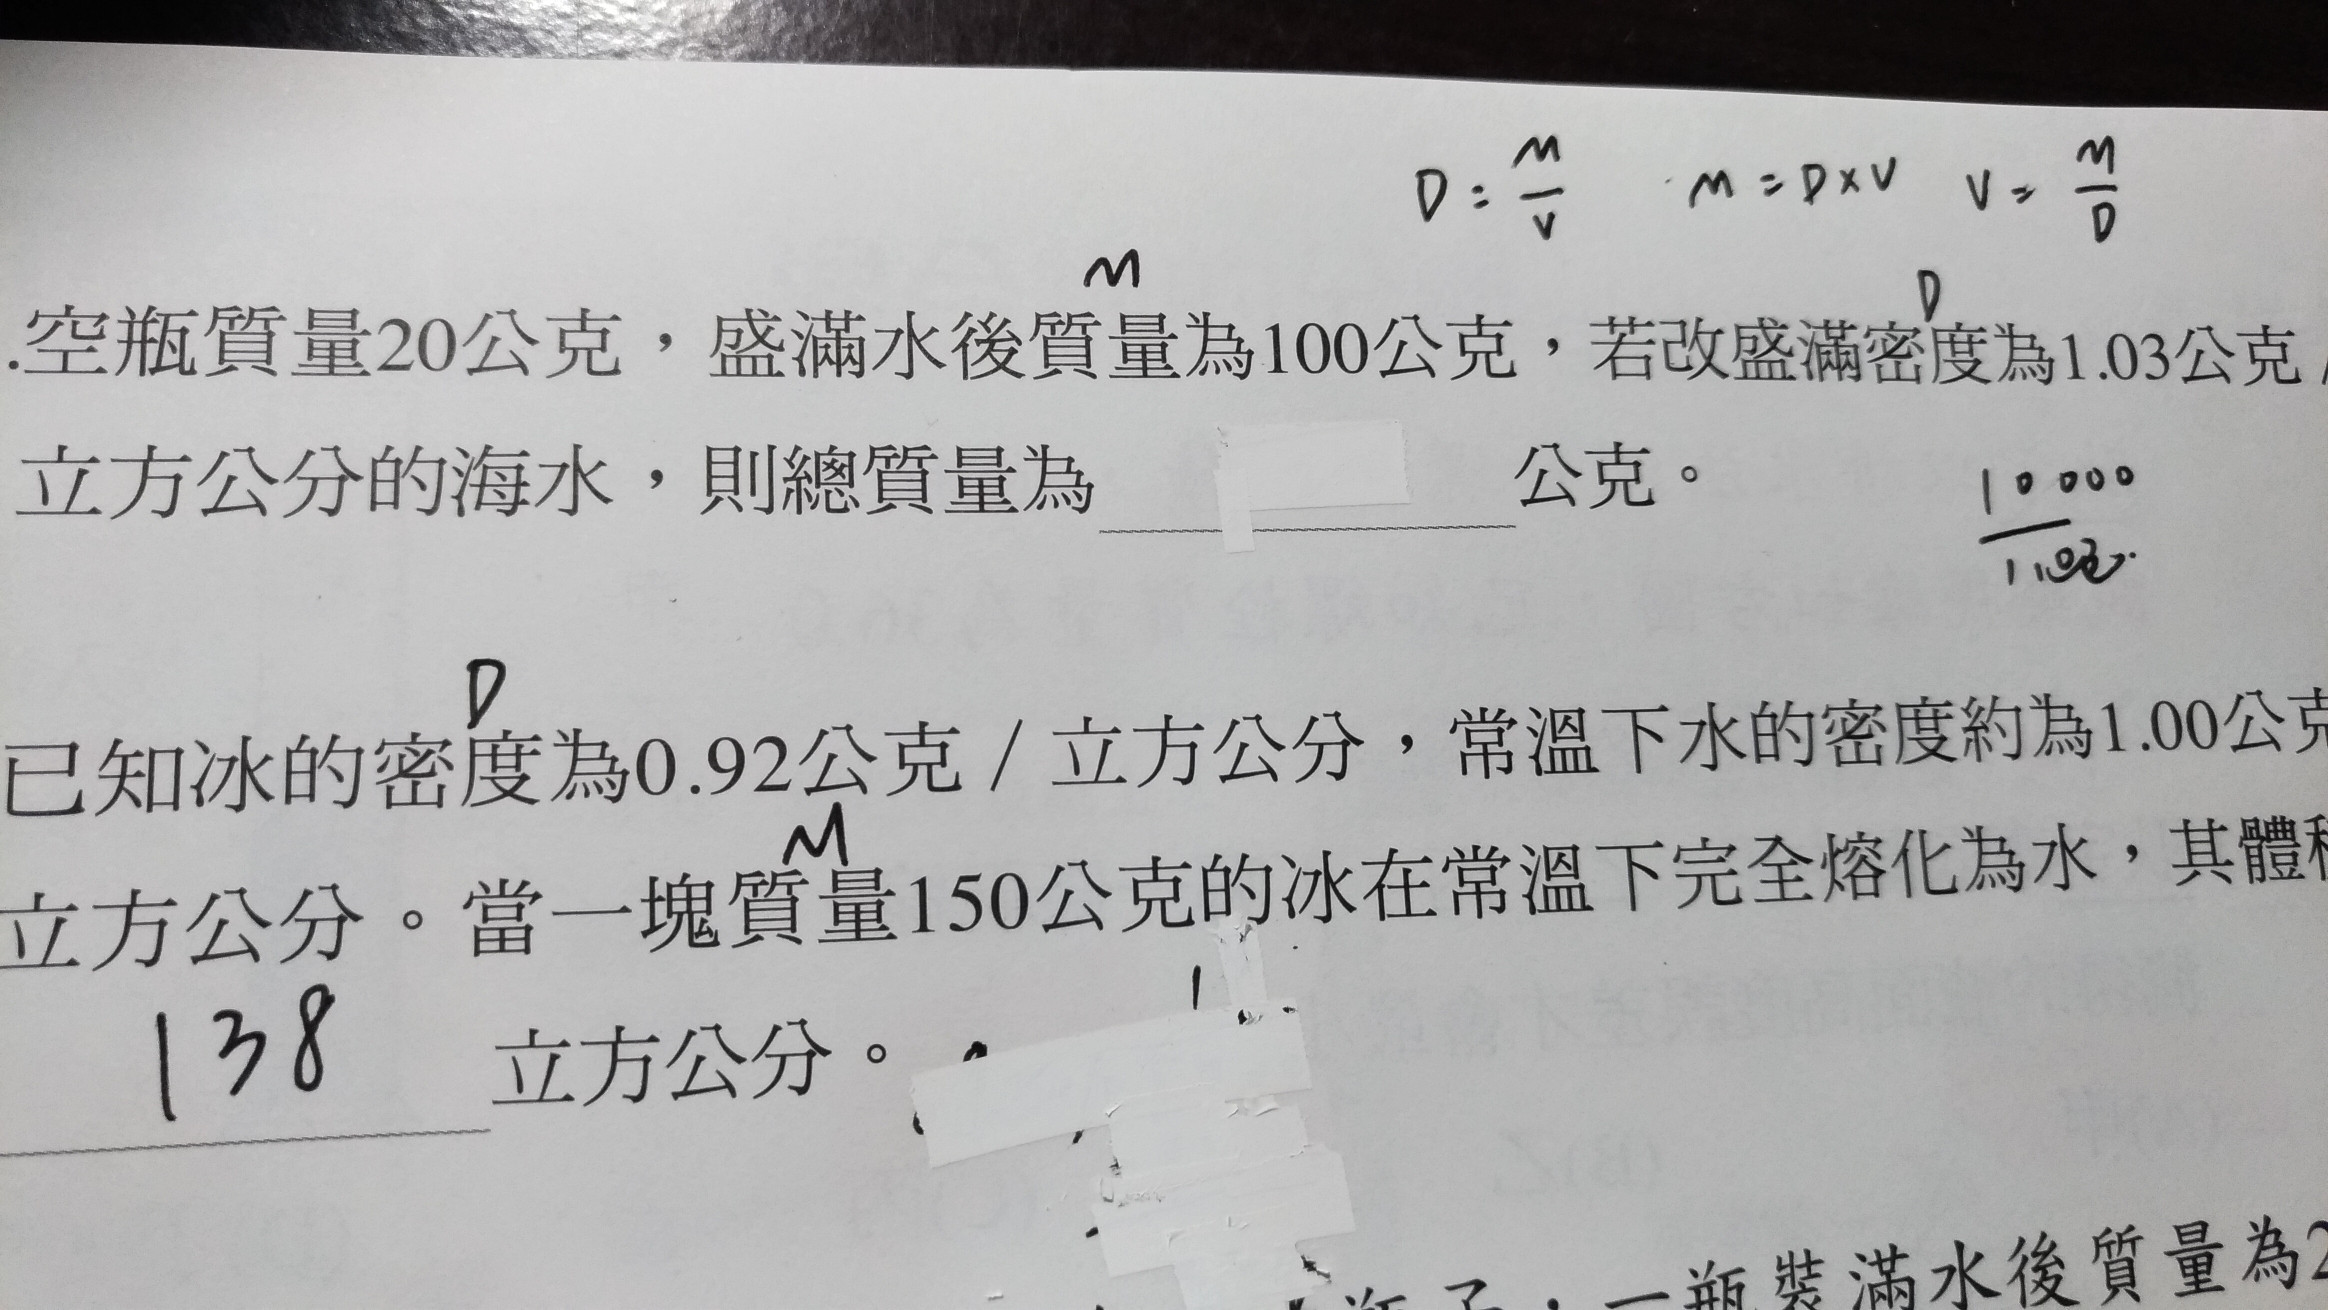 D = M/V M = D×V V = M/D
M D
.空瓶質量20公克，盛滿水後質量為100公克，若改盛滿密度為1.03公克/
立方公分的海水，則總質量為 公克。
10000
D
已知冰的密度為0.92公克/立方公分，常溫下水的密度約為1.00公克
M
立方公分。當一塊質量150公克的冰在常溫下完全熔化為水，其體積
138 立方公分。
一瓶裝滿水後質量為2